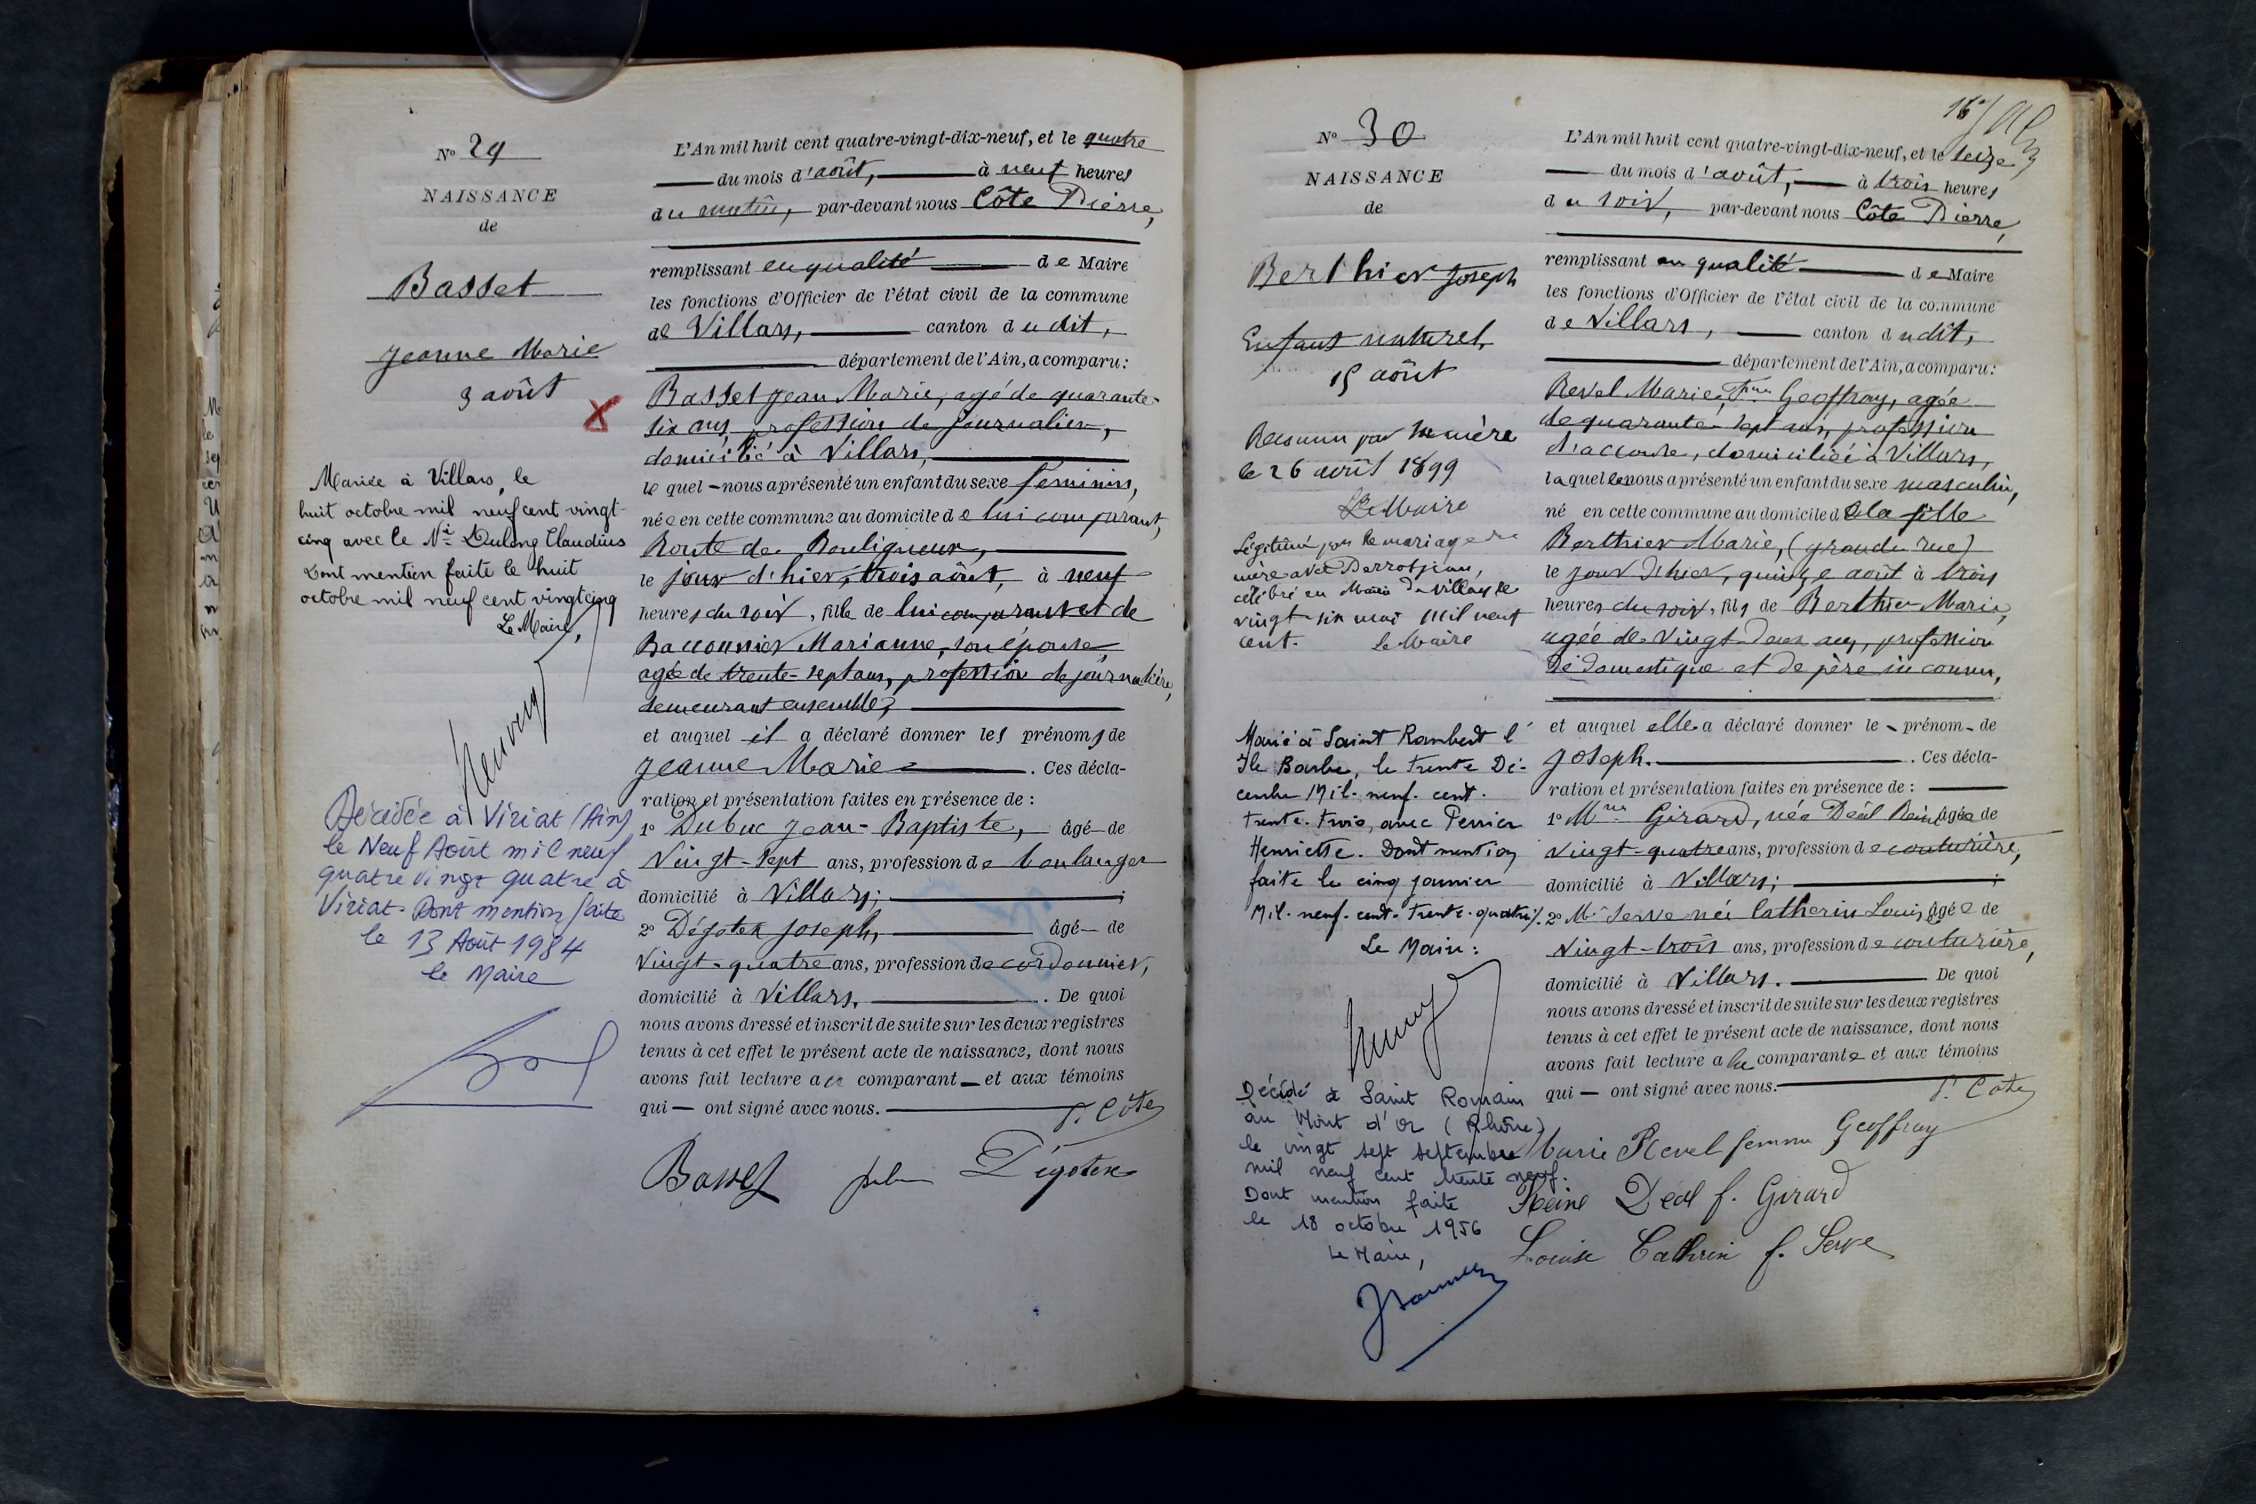 N° 29
NAISSANCE
de
Basset
Jeanne Marie
3 août
Mariée à Villars, le
huit octobre mil neuf cent vingt
cinq avec le Né Dulong Claudius
Dont mention faite le huit
octobre mil neuf cent vingt cinq
Le Maire,
Décédée à Viriat (Ain)
le Neuf Août mil neuf
quatre vingt quatre à
Viriat. Dont mention faite
le 13 Août 1984
le Maire
L'An mil huit cent quatre-vingt-dix-neuf, et le quatre
du mois d'août, à neuf heures
du matin, par-devant nous Côte Pierre,
remplissant en qualité de Maire
les fonctions d'Officier de l'état civil de la commune
de Villars, canton dudit,
département de l'Ain, a comparu:
Basset Jean Marie, agé de quarante-
six ans, profession de journalier,
domicilié à Villars,
lequel nous a présenté un enfant du sexe feminin,
née en cette commune au domicile de lui comparant,
Route de Bouligneux,
le jour d'hier, trois août, à neuf
heures du soir, fille de lui comparant et de
Bacconnier Marianne, son épouse,
agée de trente-sept ans, profession de journalière,
demeurant ensemble,
et auquel il a déclaré donner les prénoms de
Jeanne Marie . Ces décla-
ration et présentation faites en présence de :
1° Dubuc Jean-Baptiste, âgé de
Vingt-sept ans, profession de boulanger
domicilié à Villars; ;
2° Dégoten Joseph, âgé de
Vingt-quatre ans, profession de cordonnier,
domicilié à Villars. . De quoi
nous avons dressé et inscrit de suite sur les deux registres
tenus à cet effet le présent acte de naissance, dont nous
avons fait lecture au comparant et aux témoins
qui ont signé avec nous.
P. Côte
Basset Dégoten
16
N° 30
NAISSANCE
de
Berthier Joseph
Enfant naturel
15 août
Reconnu par sa mère
le 26 août 1899
Le Maire
Légitimé par le mariage de
mère avec Perrot Jean,
célébré en Mairie de Villars le
vingt six mai mil neuf
cent. Le Maire
Marié à Saint Rambert l'
Ile Barbe, le trente Dé-
cembre Mil. neuf. cent.
trente. trois, avec Perrier
Henriette. Dont mention
faite le cinq janvier
Mil. neuf. cent. trente. quatre.
Le Maire :
Décédé à Saint Romain
au Mont d'or (Rhône)
le vingt sept septembre
mil neuf cent trente neuf.
Dont mention faite
le 18 octobre 1956
Le Maire,
L'An mil huit cent quatre-vingt-dix-neuf, et le seize
du mois d'août, à trois heures
du soir, par-devant nous Côte Pierre,
remplissant en qualité de Maire
les fonctions d'Officier de l'état civil de la commune
de Villars, canton dudit,
département de l'Ain, a comparu:
Revel Marie, Fme Geoffray, agée
de quarante-sept ans, profession
d'accouche, domiciliée à Villars,
laquelle nous a présenté un enfant du sexe masculin,
né en cette commune au domicile de la fille
Berthier Marie, (grande rue)
le jour d'hier, quinze août à trois
heures du soir, fils de Berthier Marie,
agée de vingt-deux ans, profession
de domestique et de père inconnu,
et auquel elle a déclaré donner le prénom de
Joseph. . Ces décla-
ration et présentation faites en présence de :
1° Mme Girard, née Déal Reine âgée de
vingt-quatre ans, profession de couturière,
domicilié à Villars; ;
2° Me Serve née Catherin Louise âgée de
Vingt-trois ans, profession de couturière,
domicilié à Villars. De quoi
nous avons dressé et inscrit de suite sur les deux registres
tenus à cet effet le présent acte de naissance, dont nous
avons fait lecture a la comparante et aux témoins
qui ont signé avec nous.
P. Côte
Marie Revel femme Geoffray
Reine Déal f. Girard
Louise Cathrin f. Serve